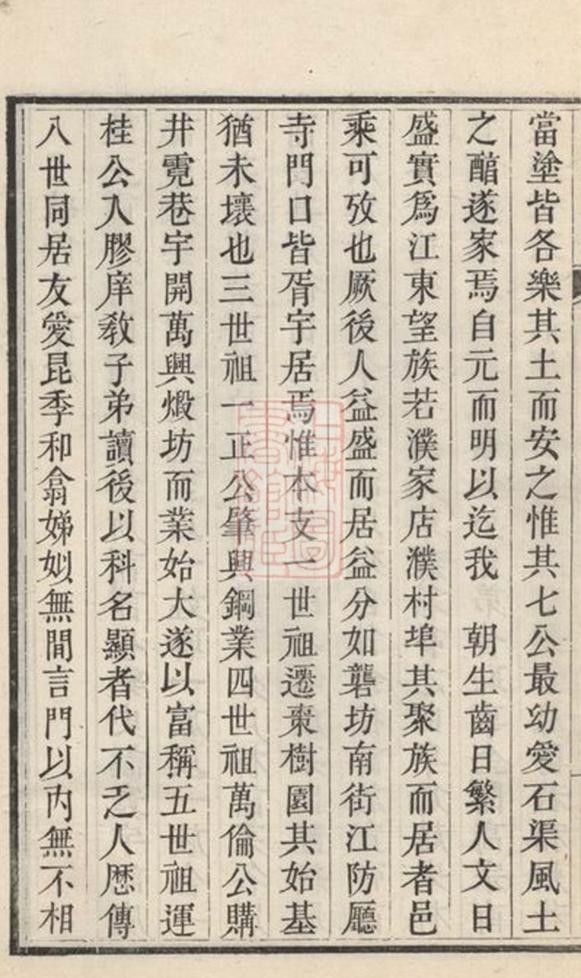 當塗皆各樂其土而安之惟其七公最幼愛石渠風土
之醕遂家焉自元而明以迄我　朝生齒日繁人文日
盛實爲江東望族若濮家店濮村埠其聚族而居者邑
乘可攷也厥後人益盛而居益分如礱坊南街江防廳
寺門口皆胥宇居焉惟本支一世祖遷棗樹園其始基
猶未壞也三世祖一正公肇興鋼業四世祖萬倫公購
井霓巷宇開萬興煅坊而業始大遂以富稱五世祖運
桂公入膠庠敎子弟讀後以科名顯者代不乏人歴傳
八世同居友愛昆季和翕娣姒無閒言門以內無不相